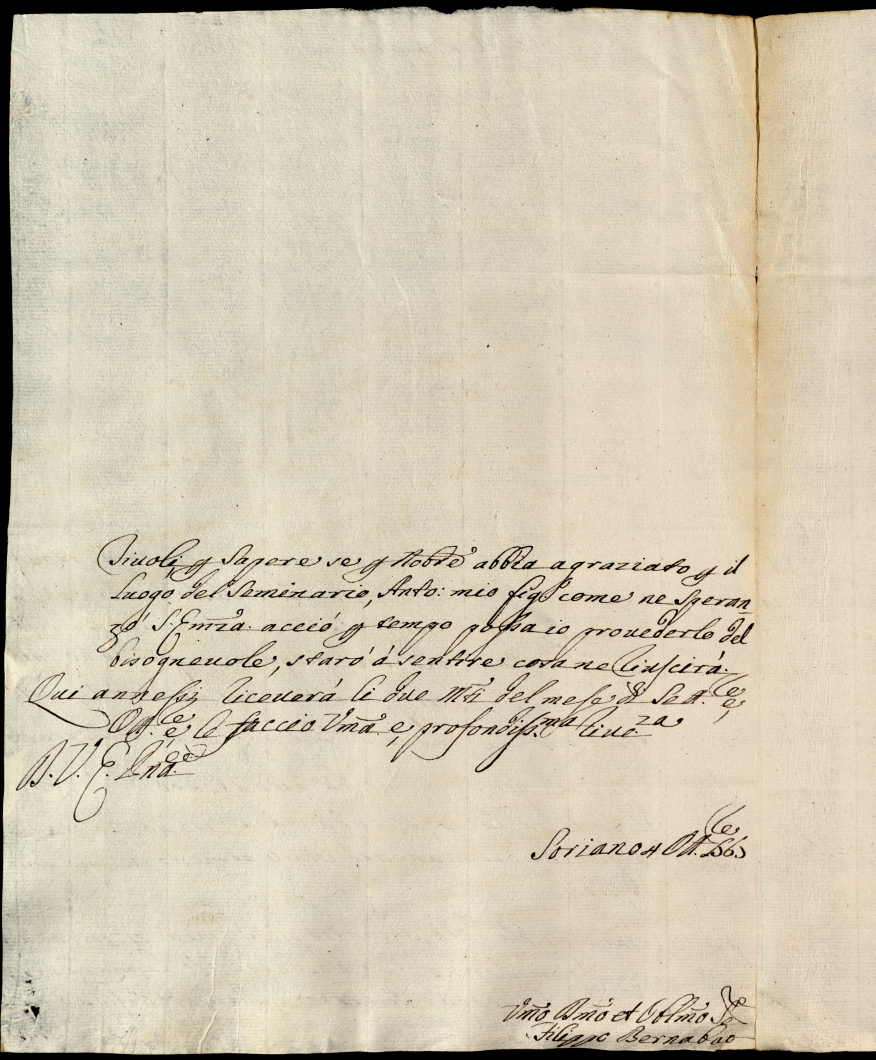 Tivoli, p sapere se p Nobre abbia agraziato p il
Luogo del Seminario, Anto: mio figo come ne speran
zó S. Emza. acció p tempo possa io provederlo del
bisognevole, staró á sentire cosa ne riuscirá.
Qui annessi riceverá li due Mti del mese di Sette, e,
Otte. e le faccio Uma e, profondissma rivza
D. V. E. Rnda
Soriano 4 Otte
Umo Dmo et Obblmo Se
Filippo Bernabao